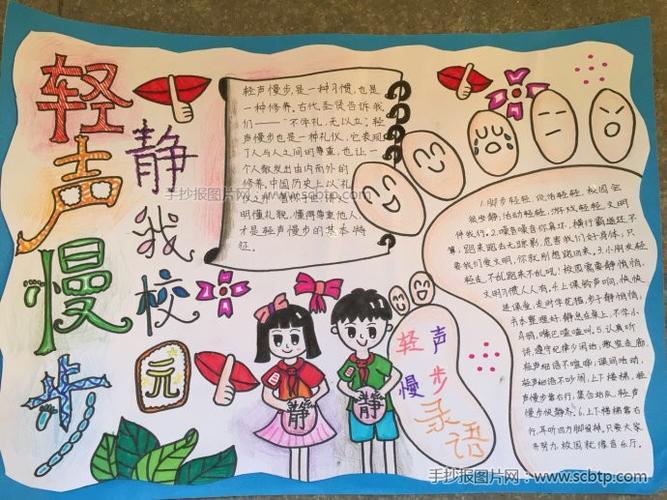 轻声慢步
静我校园
轻声慢步,是一种习惯,也是
一种修养。古代圣贤告诉我
们——“不学礼,无以立。”轻
声慢步也是一种礼仪,它表现
了人与人之间的尊重,也让一
个人散发出由内而外的
修养。中国历史上以礼
明懂礼貌,懂得尊重他人,
才是轻声慢步的基本特
征。
手抄报图片网:www.scbtp.com
静
静
轻声
慢步
录语
1.脚步轻轻,说话轻轻,校园会
很安静,活动轻轻,游戏轻轻,文明
伴我行。2.噪音噪音你真坏,横行霸道还不
算,跑来跑去无踪影,危害我们好身体,只
要我们爱文明,你就别想跑回来。3.小朋友轻
轻走,不乱跑来不乱吼;校园需要静悄悄,
文明习惯人人有。4.上课铃声响,快快
进课堂,走时花猫,步子静悄悄,
书本整理好,静息在桌上,不学小
青蛙,嘴巴呱呱叫。5.认真听
讲,遵守纪律少闹,教室走廊
轻声细语不喧哗,课间活动,
轻声细语不吵闹,上下楼梯,
慢步靠右行,集合站队,轻声
慢步快静齐。6.上下楼梯靠右
行,耳听四方脚放轻,只要大家
来努力,校园就像音乐厅。
手抄报图片网:www.scbtp.com